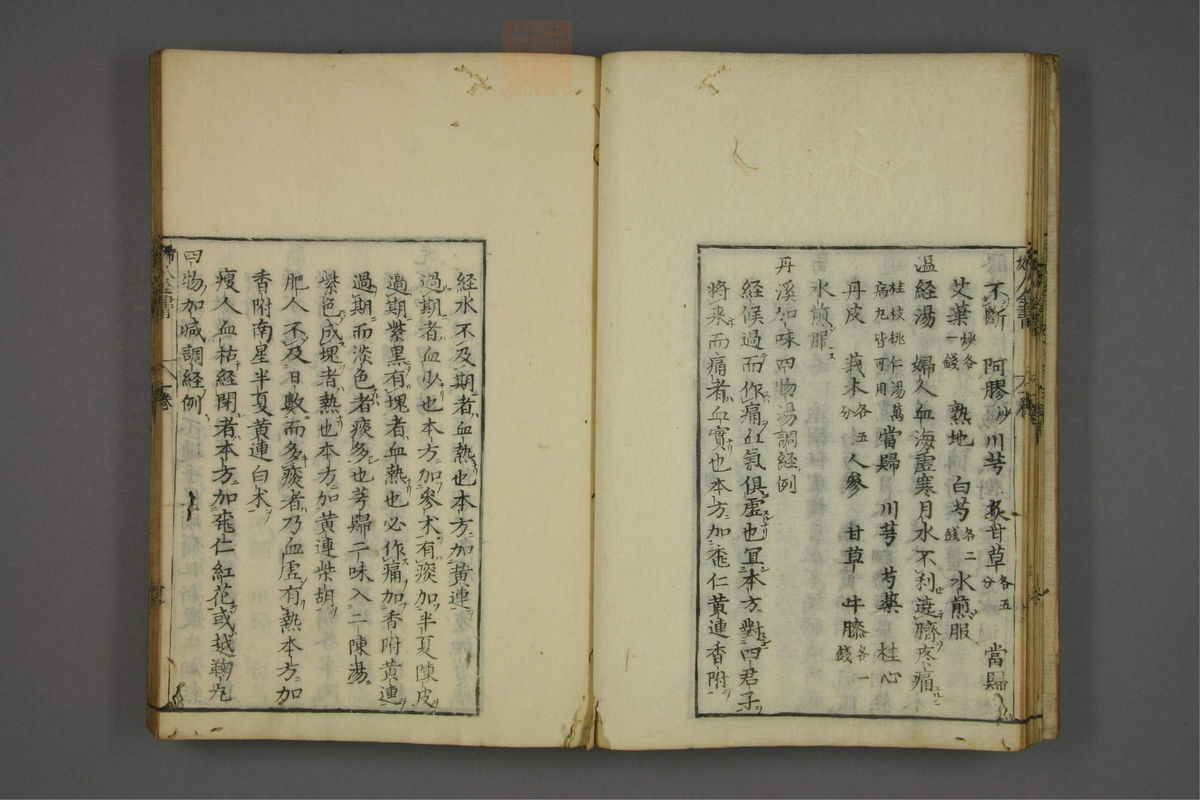 不斷　阿膠炒　川芎　炙甘草各五分　當歸
艾葉炒各一錢　熟地　白芍各二錢　水煎服
温經湯　婦人血海虛寒月水不利遶臍疼痛
桂枝桃仁湯萬病丸皆可用　當歸　川芎　芍藥　桂心
丹皮　莪朮各五分　人參　甘草　牛膝各一錢
水煎服
丹溪加味四物湯調經例
經候過而作痛血氣俱虛也宜本方對四君子
將来而痛者血實也本方加桃仁黄連香附
経水不及期者血熱也本方加黄連
過期者血少也本方加參朮有痰加半夏陳皮
過期紫黑有塊者血熱也必作痛加香附黄連
過期而淡色者痰多也芎歸二味入二陳湯
紫色成塊者熱也本方加黄連柴胡
肥人不及日數而多痰者乃血虛有熱本方加
香附南星半夏黄連白朮
瘦人血枯経閉者本方加桃仁紅花或越鞠丸
四物加减調経例